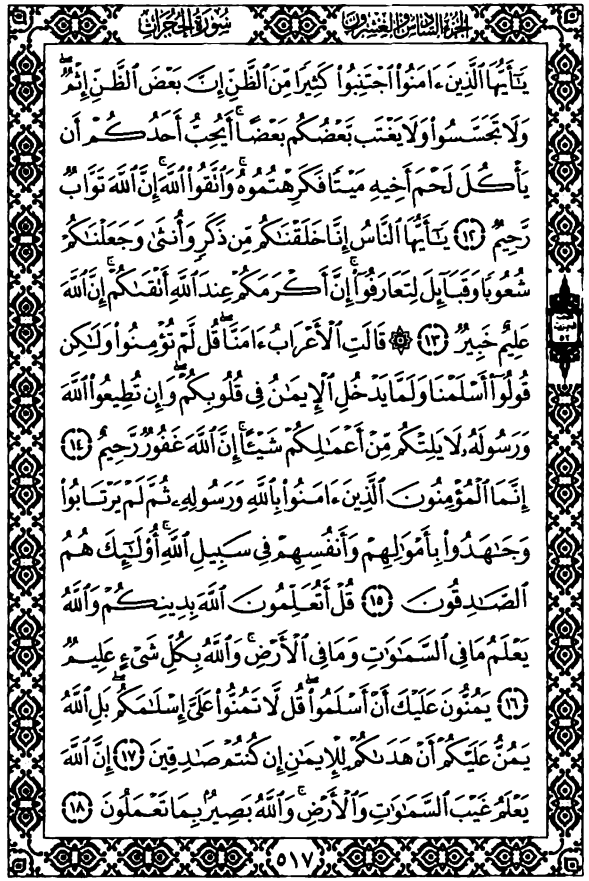 سُورَةُ الحُجُرَاتِ
الجُزْءُ السَّادِسُ وَالعِشْرُونَ
يَٰٓأَيُّهَا ٱلَّذِينَ ءَامَنُوا۟ ٱجْتَنِبُوا۟ كَثِيرًا مِّنَ ٱلظَّنِّ إِنَّ بَعْضَ ٱلظَّنِّ إِثْمٌ ۖ
وَلَا تَجَسَّسُوا۟ وَلَا يَغْتَب بَّعْضُكُم بَعْضًا ۚ أَيُحِبُّ أَحَدُكُمْ أَن
يَأْكُلَ لَحْمَ أَخِيهِ مَيْتًا فَكَرِهْتُمُوهُ ۚ وَٱتَّقُوا۟ ٱللَّهَ ۚ إِنَّ ٱللَّهَ تَوَّابٌ
رَّحِيمٌ ١٢ يَٰٓأَيُّهَا ٱلنَّاسُ إِنَّا خَلَقْنَٰكُم مِّن ذَكَرٍ وَأُنثَىٰ وَجَعَلْنَٰكُمْ
شُعُوبًا وَقَبَآئِلَ لِتَعَارَفُوٓا۟ ۚ إِنَّ أَكْرَمَكُمْ عِندَ ٱللَّهِ أَتْقَىٰكُمْ ۚ إِنَّ ٱللَّهَ
عَلِيمٌ خَبِيرٌ ١٣ ۞ قَالَتِ ٱلْأَعْرَابُ ءَامَنَّا ۖ قُل لَّمْ تُؤْمِنُوا۟ وَلَٰكِن
قُولُوٓا۟ أَسْلَمْنَا وَلَمَّا يَدْخُلِ ٱلْإِيمَٰنُ فِى قُلُوبِكُمْ ۖ وَإِن تُطِيعُوا۟ ٱللَّهَ
وَرَسُولَهُۥ لَا يَلِتْكُم مِّنْ أَعْمَٰلِكُمْ شَيْـًٔا ۚ إِنَّ ٱللَّهَ غَفُورٌ رَّحِيمٌ ١٤
إِنَّمَا ٱلْمُؤْمِنُونَ ٱلَّذِينَ ءَامَنُوا۟ بِٱللَّهِ وَرَسُولِهِۦ ثُمَّ لَمْ يَرْتَابُوا۟
وَجَٰهَدُوا۟ بِأَمْوَٰلِهِمْ وَأَنفُسِهِمْ فِى سَبِيلِ ٱللَّهِ ۚ أُو۟لَٰٓئِكَ هُمُ
ٱلصَّٰدِقُونَ ١٥ قُلْ أَتُعَلِّمُونَ ٱللَّهَ بِدِينِكُمْ وَٱللَّهُ
يَعْلَمُ مَا فِى ٱلسَّمَٰوَٰتِ وَمَا فِى ٱلْأَرْضِ ۚ وَٱللَّهُ بِكُلِّ شَىْءٍ عَلِيمٌ
١٦ يَمُنُّونَ عَلَيْكَ أَنْ أَسْلَمُوا۟ ۖ قُل لَّا تَمُنُّوا۟ عَلَىَّ إِسْلَٰمَكُم ۖ بَلِ ٱللَّهُ
يَمُنُّ عَلَيْكُمْ أَنْ هَدَىٰكُمْ لِلْإِيمَٰنِ إِن كُنتُمْ صَٰدِقِينَ ١٧ إِنَّ ٱللَّهَ
يَعْلَمُ غَيْبَ ٱلسَّمَٰوَٰتِ وَٱلْأَرْضِ ۚ وَٱللَّهُ بَصِيرٌۢ بِمَا تَعْمَلُونَ ١٨
٥١٧